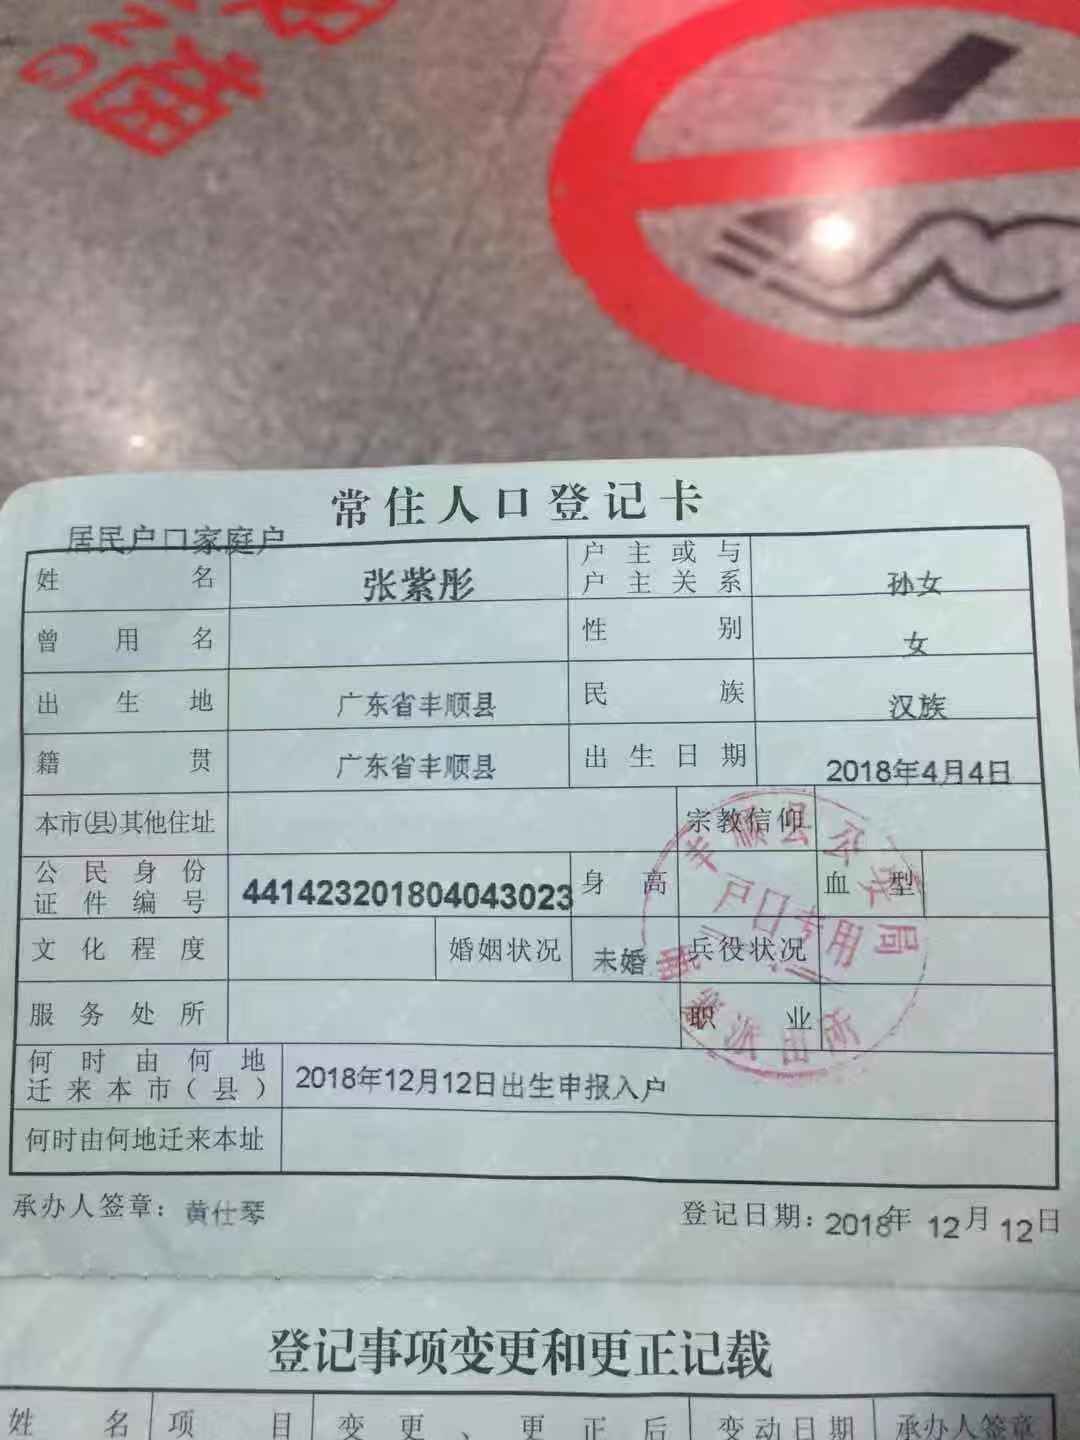 居民户口家庭户
常住人口登记卡
姓名 张紫彤 户主或与户主关系 孙女
曾用名 性别 女
出生地 广东省丰顺县 民族 汉族
籍贯 广东省丰顺县 出生日期 2018年4月4日
本市(县)其他住址 宗教信仰
公民身份证件编号 441423201804043023 身高 血型
文化程度 婚姻状况 未婚 兵役状况
服务处所 职业
何时由何地迁来本市(县) 2018年12月12日出生申报入户
何时由何地迁来本址
丰顺县公安局
户口专用
派出所
承办人签章：黄仕琴 登记日期：2018年12月12日
登记事项变更和更正记载
姓名 项目 变更、更正后 变动日期 承办人签章